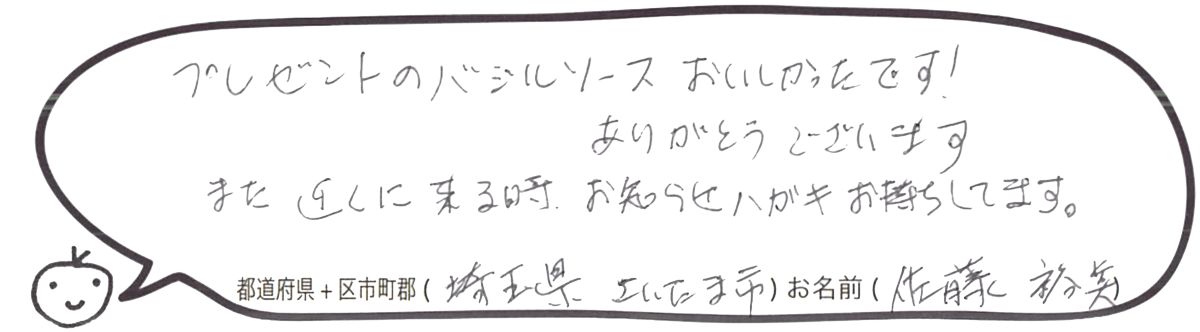 プレゼントのバジルソース おいしかったです!
ありがとうございます
また 近くに 来る時、お知らせハガキ お持ちしてます。
都道府県+区市町郡(埼玉県 さいたま市)お名前(佐藤 裕美